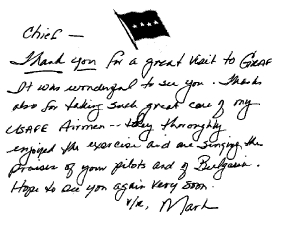 Chief —
Thank you for a great visit to GRAF
It was wonderful to see you. Thanks
also for taking such great care of my
USAFE Airmen -- they thoroughly
enjoyed the exercise and are singing the
praises of your pilots and of Bulgaria.
Hope to see you again very soon.
v/r, Mark